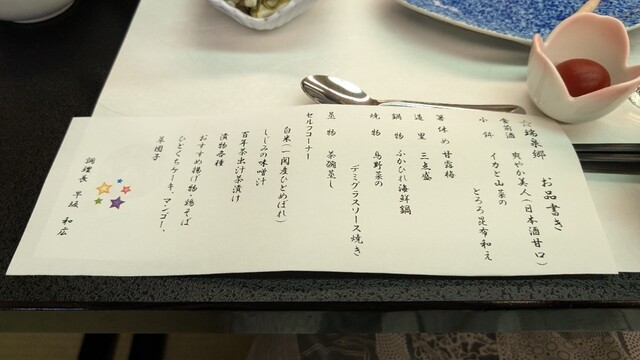 ☆瑞泉郷 お品書き
食前酒 爽やか美人(日本酒甘口)
小鉢 イカと山菜の
とろろ昆布和え
箸休め 甘露梅
造里 三点盛
鍋物 ふかひれ海鮮鍋
焼物 鳥野菜の
デミグラスソース焼き
蒸物 茶碗蒸し
セルフコーナー
白米(一関産ひとめぼれ)
しじみの味噌汁
百年茶出汁茶漬け
漬物各種
おすすめ揚げ物・鶏そば
ひとくちケーキ、マンゴー、
草団子
調理長 早坂 和広